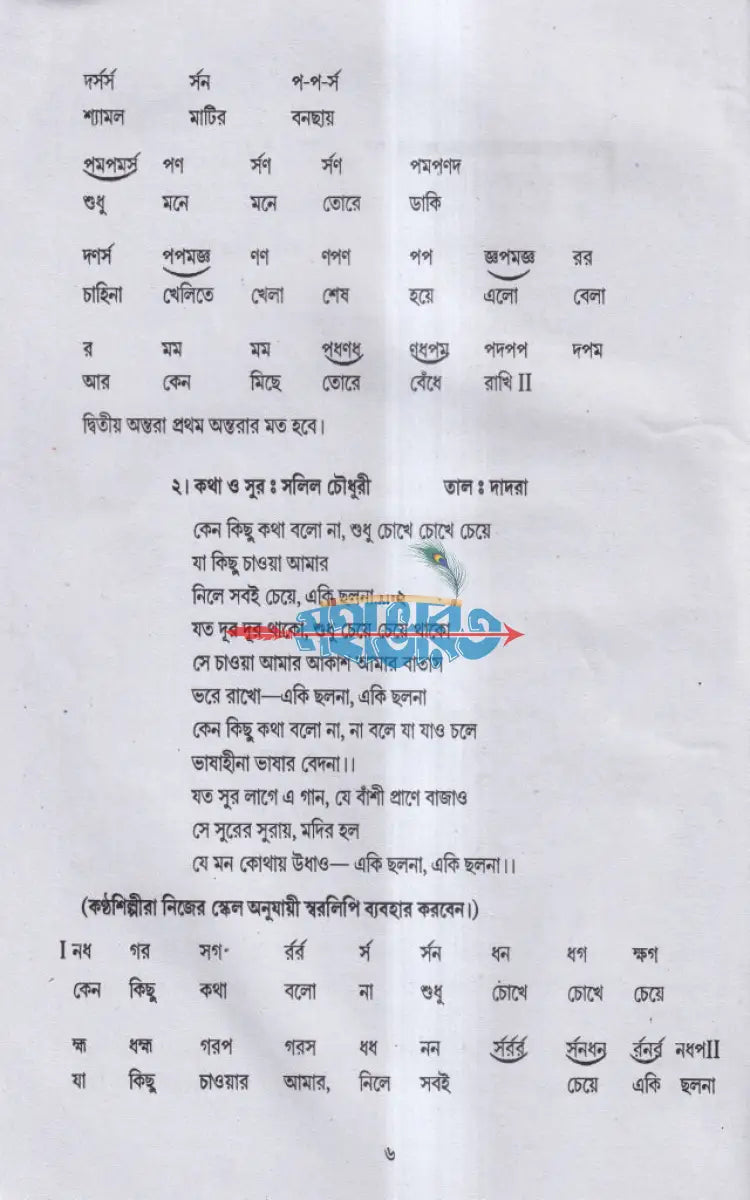 দর্সর্স র্সন প-প-র্স
শ্যামল মাটির বনছায়
পমপমর্স পণ র্সণ র্সণ পমপণদ
শুধু মনে মনে তোরে ডাকি
দণর্স পপমজ্ঞ ণণ ণপণ পপ জ্ঞপমজ্ঞ রর
চাহিনা খেলিতে খেলা শেষ হয়ে এলো বেলা
র মম মম পধণধ ণধপম পদপপ দপম
আর কেন মিছে তোরে বেঁধে রাখি II
দ্বিতীয় অন্তরা প্রথম অন্তরার মত হবে।
২। কথা ও সুর ঃ সলিল চৌধুরী তাল ঃ দাদরা
কেন কিছু কথা বলো না, শুধু চোখে চোখে চেয়ে
যা কিছু চাওয়া আমার
নিলে সবই চেয়ে, একি ছলনা....
মহাভারত
যত দূর দূর থাকো, শুধু চেয়ে চেয়ে থাকো
সে চাওয়া আমার আকাশ আমার বাতাস
ভরে রাখো—একি ছলনা, একি ছলনা
কেন কিছু কথা বলো না, না বলে যা যাও চলে
ভাষাহীনা ভাষার বেদনা।।
যত সুর লাগে এ গান, যে বাঁশী প্রাণে বাজাও
সে সুরের সুরায়, মদির হল
যে মন কোথায় উধাও— একি ছলনা, একি ছলনা।।
(কণ্ঠশিল্পীরা নিজের স্কেল অনুযায়ী স্বরলিপি ব্যবহার করবেন।)
I নধ গর সগ র্রর্র র্স র্সন ধন ধগ ক্ষগ
কেন কিছু কথা বলো না শুধু চোখে চোখে চেয়ে
হ্ম ধহ্ম গরপ গরস ধধ নন র্সর্রর্র র্সনধন র্রনর্র নধপII
যা কিছু চাওয়ার আমার, নিলে সবই চেয়ে একি ছলনা
৬